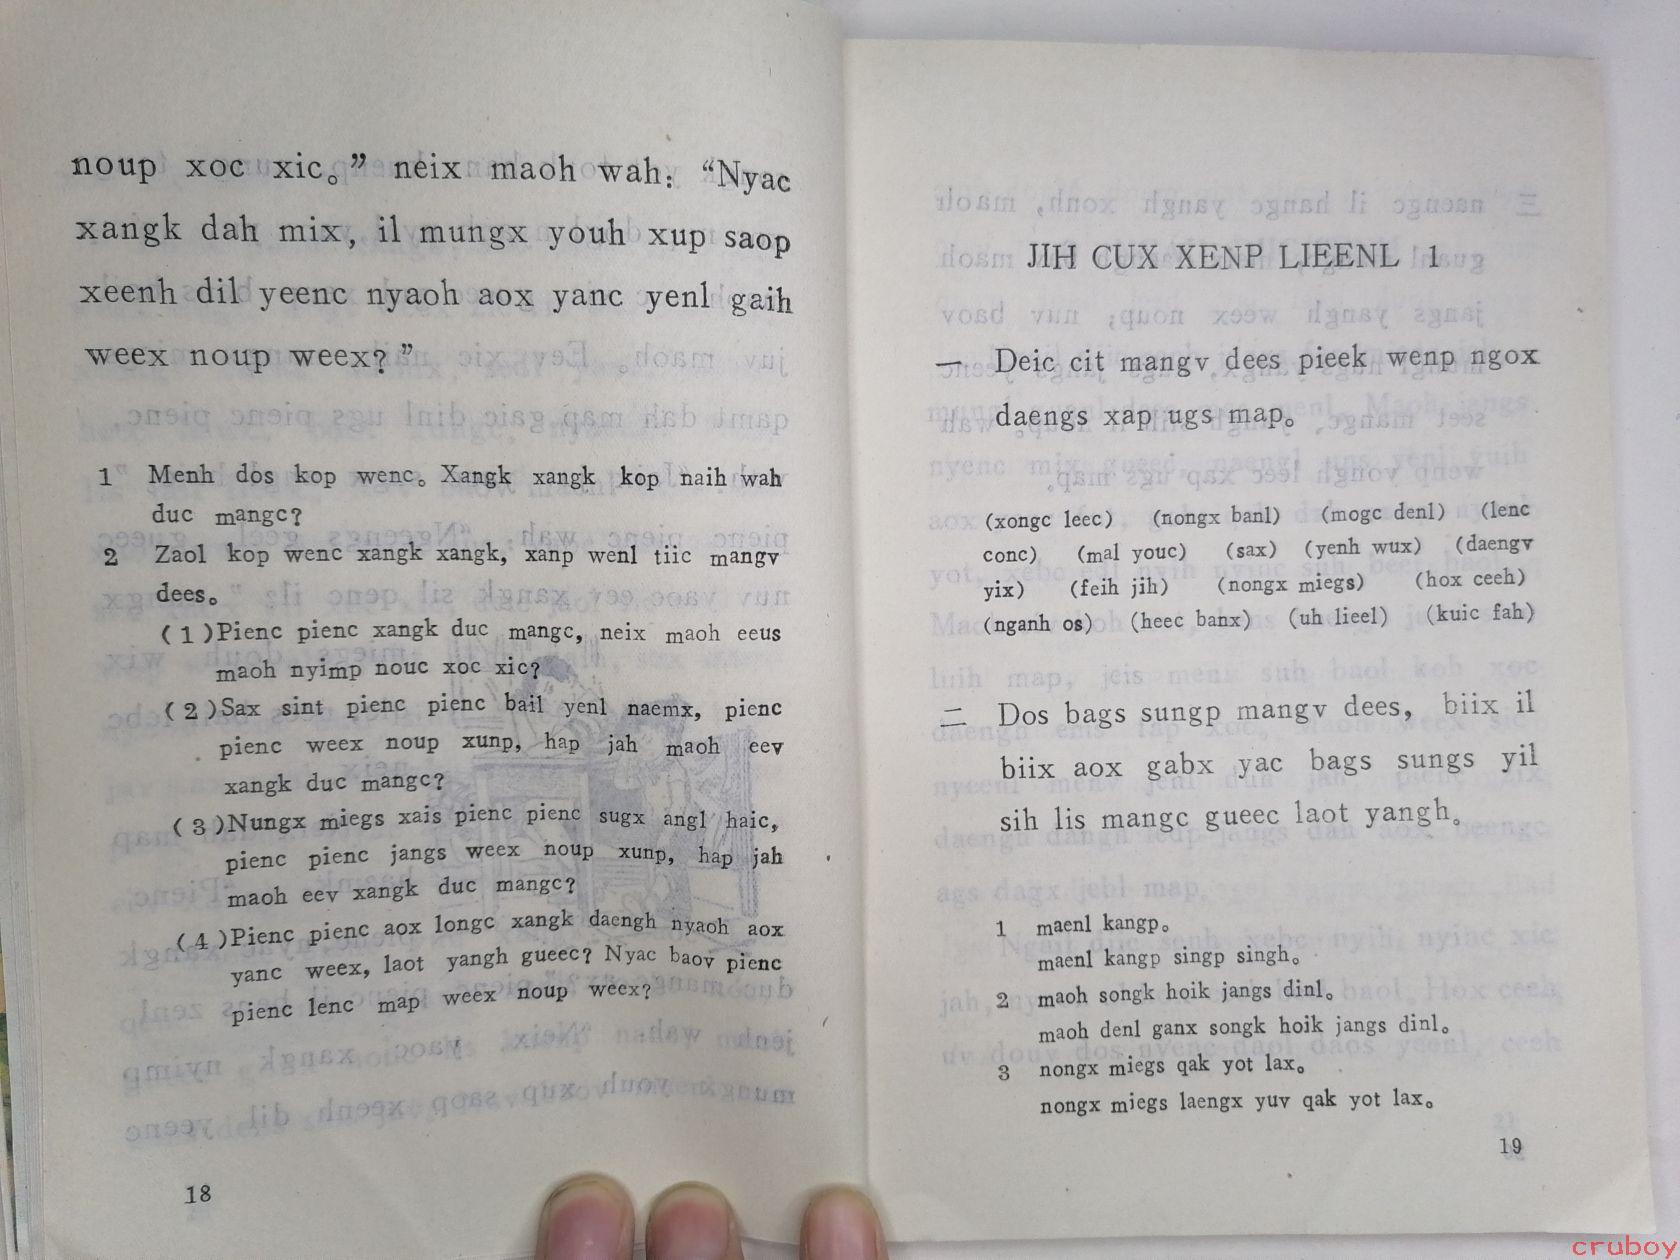 noup xoc xic。” neix maoh wah: “Nyac
xangk dah mix, il mungx youh xup saop
xeenh dil yeenc nyaoh aox yanc yenl gaih
weex noup weex? ”
1 Menh dos kop wenc。 Xangk xangk kop naih wah
duc mangc?
2 Zaol kop wenc xangk xangk, xanp wenl tiic mangv
dees。
(1)Pienc pienc xangk duc mangc, neix maoh eeus
maoh nyimp nouc xoc xic?
(2)Sax sint pienc pienc bail yenl naemx, pienc
pienc weex noup xunp, hap jah maoh eev
xangk duc mangc?
(3)Nungx miegs xais pienc pienc sugx angl haic,
pienc pienc jangs weex noup xunp, hap jah
maoh eev xangk duc mangc?
(4)Pienc pienc aox longc xangk daengh nyaoh aox
yanc weex, laot yangh gueec? Nyac baov pienc
pienc lenc map weex noup weex?
18
JIH CUX XENP LIEENL 1
一 Deic cit mangv dees pieek wenp ngox
daengs xap ugs map。
(xongc leec) (nongx banl) (mogc denl) (lenc
conc) (mal youc) (sax) (yenh wux) (daengv
yix) (feih jih) (nongx miegs) (hox ceeh)
(nganh os) (heec banx) (uh lieel) (kuic fah)
二 Dos bags sungp mangv dees, biix il
biix aox gabx yac bags sungs yil
sih lis mangc gueec laot yangh。
1 maenl kangp。
maenl kangp singp singh。
2 maoh songk hoik jangs dinl。
maoh denl ganx songk hoik jangs dinl。
3 nongx miegs qak yot lax。
nongx miegs laengx yuv qak yot lax。
19
cruboy